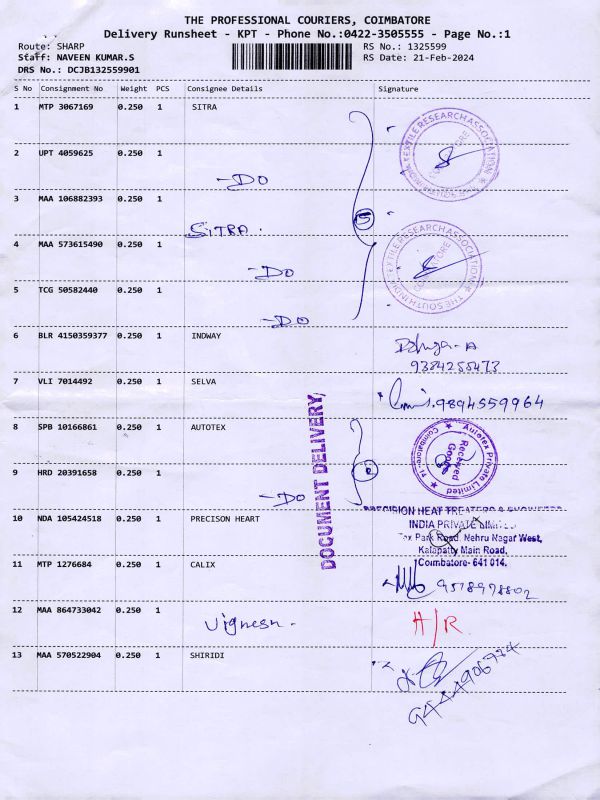 THE PROFESSIONAL COURIERS, COIMBATORE
Delivery Runsheet - KPT - Phone No.:0422-3505555 - Page No.:1
Route: SHARP
RS No.: 1325599
Staff: NAVEEN KUMAR.S
RS Date: 21-Feb-2024
DRS No.: DCJB132559901
S No Consignment No Weight PCS Consignee Details Signature
1 MTP 3067169 0.250 1 SITRA
2 UPT 4059625 0.250 1
-DO
3 MAA 106882393 0.250 1
SITRA.
4 MAA 573615490 0.250 1
-DO
5 TCG 50582440 0.250 1
-DO
5
TEXTILE RESEARCH ASSOCIATION
THE SOUTH INDIA TEXTILE RESEARCH ASSOCIATION
6 BLR 4150359377 0.250 1 INDWAY
7 VLI 7014492 0.250 1 SELVA
9894559964
8 SPB 10166861 0.250 1 AUTOTEX
Autotex Private Limited
Coimbatore
Received
Goods
9 HRD 20391658 0.250 1
-DO
DOCUMENT DELIVERY
10 NDA 105424518 0.250 1 PRECISON HEART
PRECISION HEAT TREATERS & ENGINEERS
INDIA PRIVATE LIMITED
Tex Park Road, Nehru Nagar West,
Kalapatty Main Road,
Coimbatore- 641 014.
11 MTP 1276684 0.250 1 CALIX
9578978802
12 MAA 864733042 0.250 1
Vignesh -
H/R
13 MAA 570522904 0.250 1 SHIRIDI
9444906774